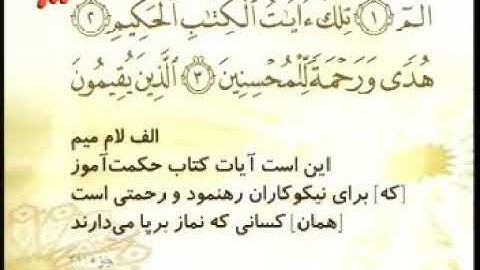 الٓمٓ ﴿١﴾ تِلْكَ ءَايَٰتُ ٱلْكِتَٰبِ ٱلْحَكِيمِ ﴿٢﴾
هُدًى وَرَحْمَةً لِّلْمُحْسِنِينَ ﴿٣﴾ ٱلَّذِينَ يُقِيمُونَ
الف لام میم
این است آیات کتاب حکمت‌آموز
[که] برای نیکوکاران رهنمود و رحمتی است
[همان] کسانی که نماز برپا می‌دارند